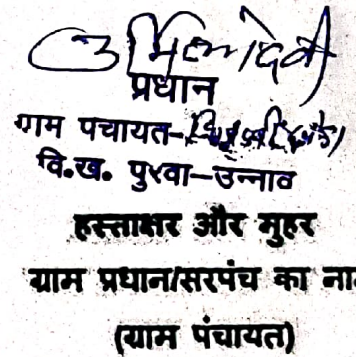 उर्मिला देवी
प्रधान
ग्राम पचायत-
वि.ख. पुरवा-उन्नाव
हस्ताक्षर और मुहर
ग्राम प्रधान/सरपंच का ना
(ग्राम पंचायत)